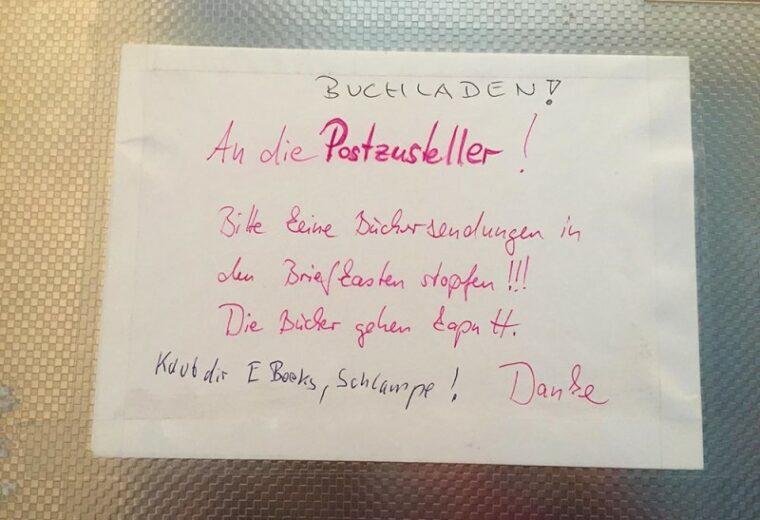 BUCHLADEN!
An die Postzusteller!
Bitte keine Büchersendungen in
den Briefkasten stopfen!!!
Die Bücher gehen kaputt.
Kauf dir E Books, Schlampe!
Danke